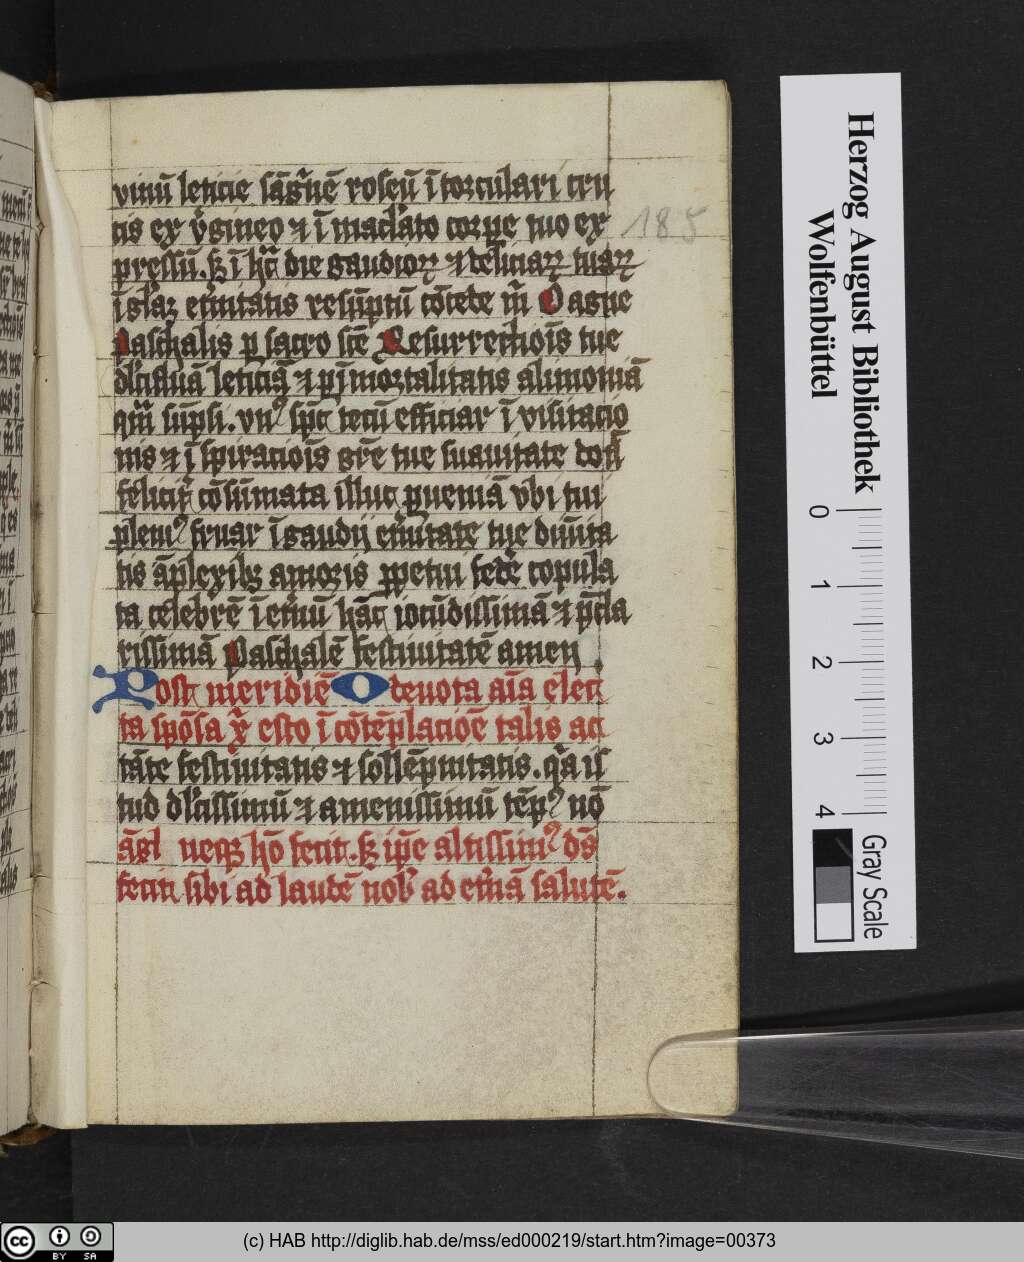 vinū leticie sāgͥnē roseū ī torculari cru
cis ex v̄gineo ⁊ ī mactato corpe tuo ex
pressū. ꝫ ī hac die gaudioꝝ ⁊ deliciaꝝ tuaꝝ
eternitatis resūptū
agne
Paschalis ꝑ sacro scē Resurrectiōis tue
leticiā ⁊ mortalitatis alimoniā
sūpsi. vnꝰ spc tecū efficiar ī visitacio
nis ⁊ īspiraciōis grē tue suauitate
felicit̄ cōsūmata illuc ꝑueniā vbi tui
plenꝰ fruar ī gaudij etn̄itate tue diuīta
tis āplexibꝫ amoris ꝑpetui federe copula
ta celebrē ī etn̄ū hāc iocūdissimā ⁊ p̄cla
rissimā Paschalē festiuitatē amen .
Post meridiē O deuota aīa elect
ta spōsa xp̄i esto ī cōtēplaciōe talis ac
tāte festiuitatis ⁊ sollēpnitatis. qͥa is
tud dulcissimū ⁊ amenissimū tēpꝰ nō
āgl neqꝫ hō fecit. ꝫ ipē altissimꝰ dn̄s
fecit sibi ad laudē nob̄ ad etn̄ā salutē.
185
Herzog August Bibliothek
Wolfenbüttel
0 1 2 3 4
Gray Scale
cc BY SA
(c) HAB http://diglib.hab.de/mss/ed000219/start.htm?image=00373